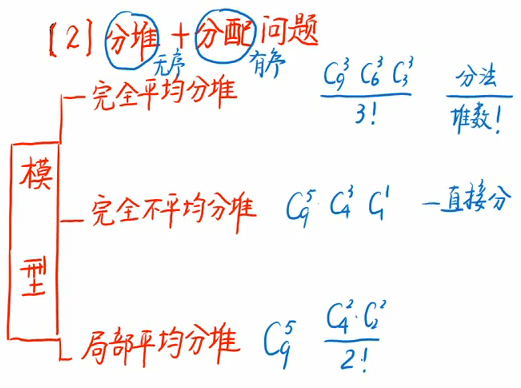 (2) 分堆 + 分配 问题
无序 有序
完全平均分堆 C₉³ C₆³ C₃³ / 3! 分法 / 堆数!
模型
完全不平均分堆 C₉⁵ · C₄³ C₁¹ 一直接分
局部平均分堆 C₉⁵ C₄² · C₂² / 2!